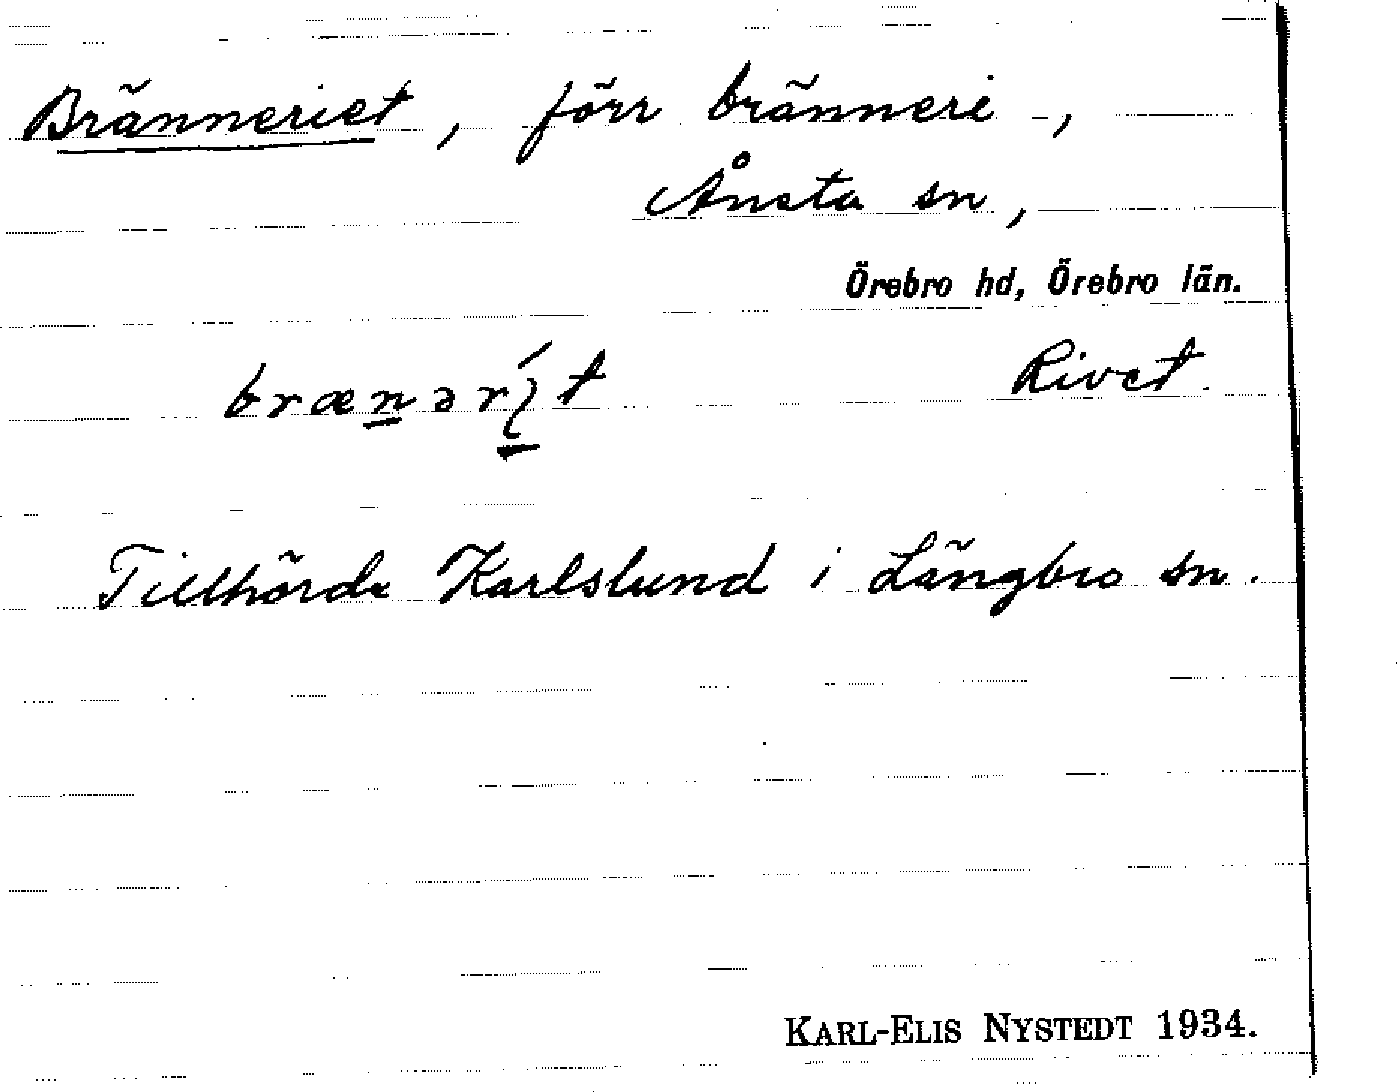 Bränneriet, förr bränneri,
Ånsta sn,
Örebro hd, Örebro län.
brænərít Rivet.
Tillhörde Karlslund i Längbro sn.
KARL-ELIS NYSTEDT 1934.